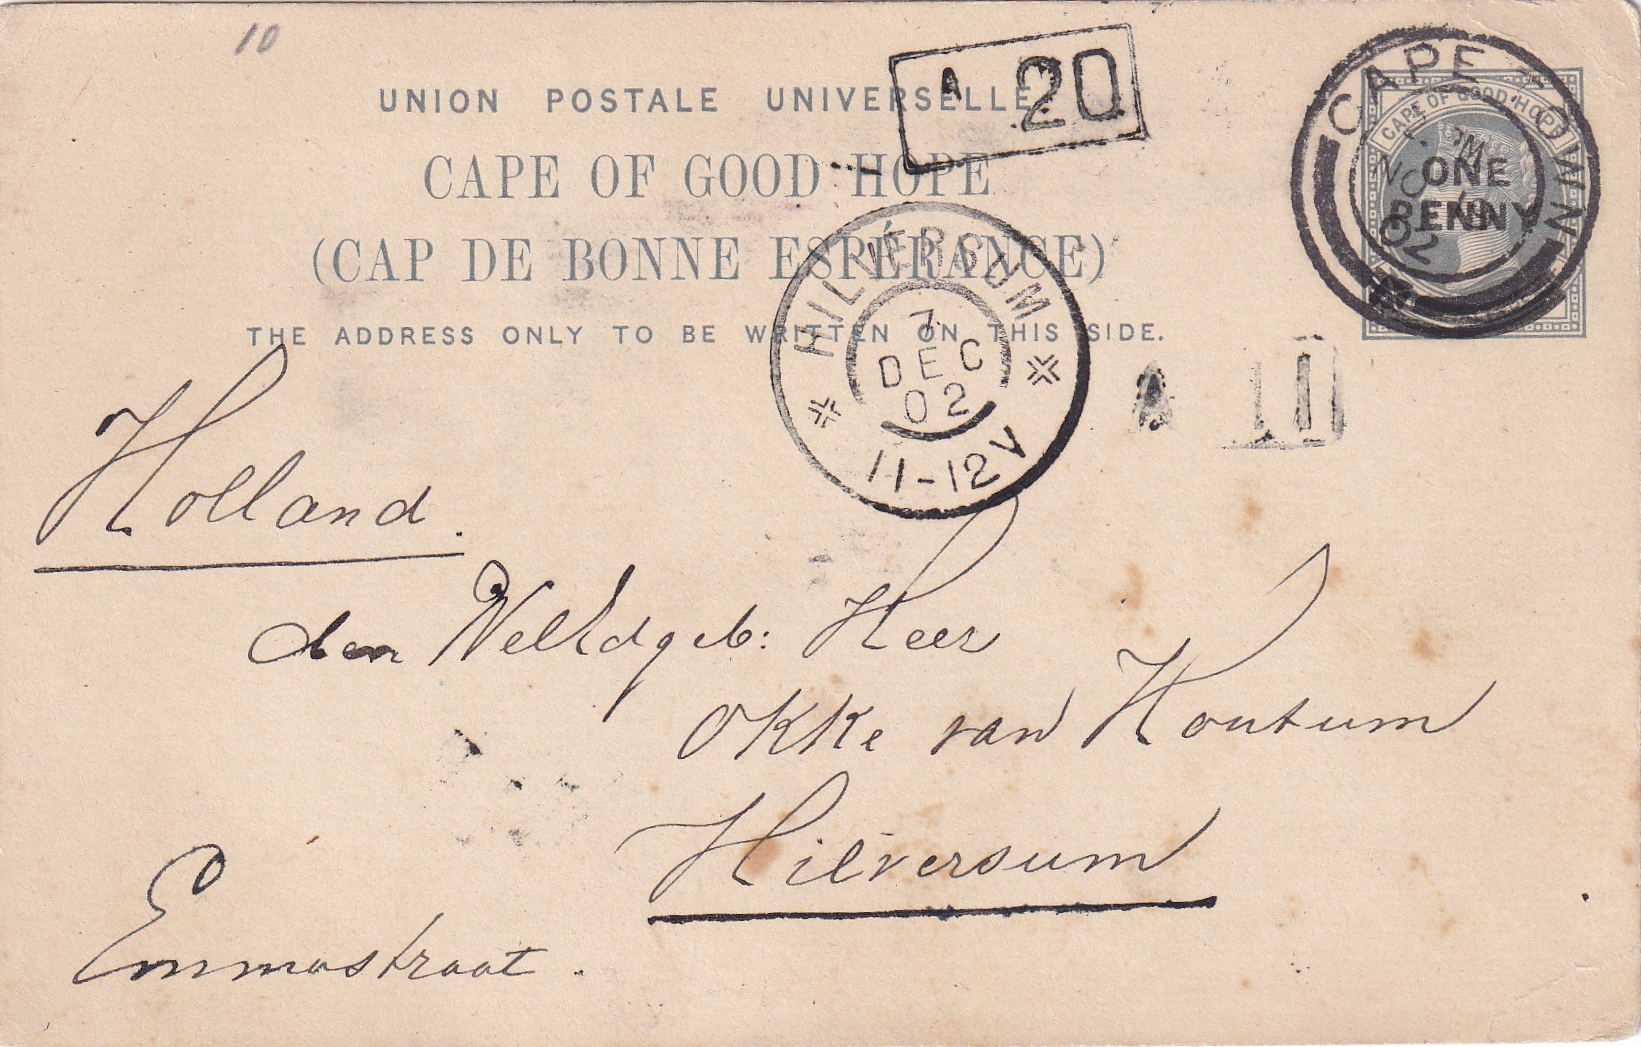 10
A 20
UNION POSTALE UNIVERSELLE
CAPE OF GOOD HOPE
(CAP DE BONNE ESPÉRANCE)
THE ADDRESS ONLY TO BE WRITTEN ON THIS SIDE.
CAPE TOWN
PM
NO
02
M
CAPE OF GOOD HOPE
ONE
PENNY
HILVERSUM
7
DEC
02
11-12V
A
Holland.
den WelEdgeb: Heer
Okke van Houtum
Hilversum
Emmastraat.